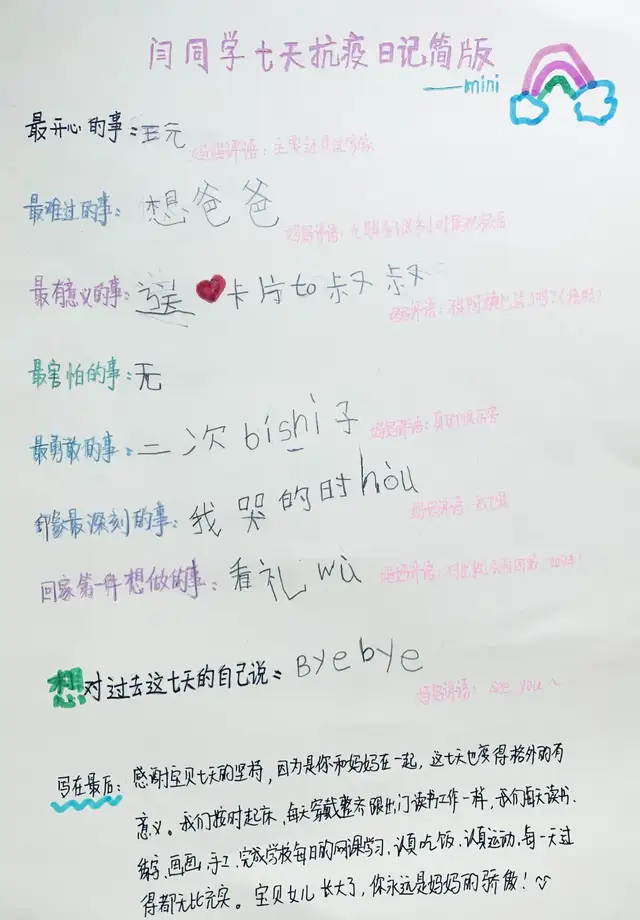 闫同学七天抗疫日记简版
——mini
最开心的事：王元
妈妈评语：主要还是说家家
最难过的事：想爸爸
妈妈评语：
最有意义的事：送❤卡片to叔叔
妈妈评语：
最害怕的事：无
最勇敢的事：二次bishi子
妈妈评语：真的很厉害
印象最深刻的事：我哭的时hòu
妈妈评语：
回家第一件想做的事：看礼wù
妈妈评语：
想对过去这七天的自己说：Byebye
妈妈评语：see you~
写在最后：感谢宝贝七天的坚持，因为是你和妈妈在一起，这七天也变得格外的有
意义。我们按时起床，每天穿戴整齐跟出门读书工作一样，我们每天读书、
练字、画画、手工、完成学校每日的网课学习、认真吃饭、认真运动，每一天过
得都无比充实。宝贝女儿长大了，你永远是妈妈的骄傲！